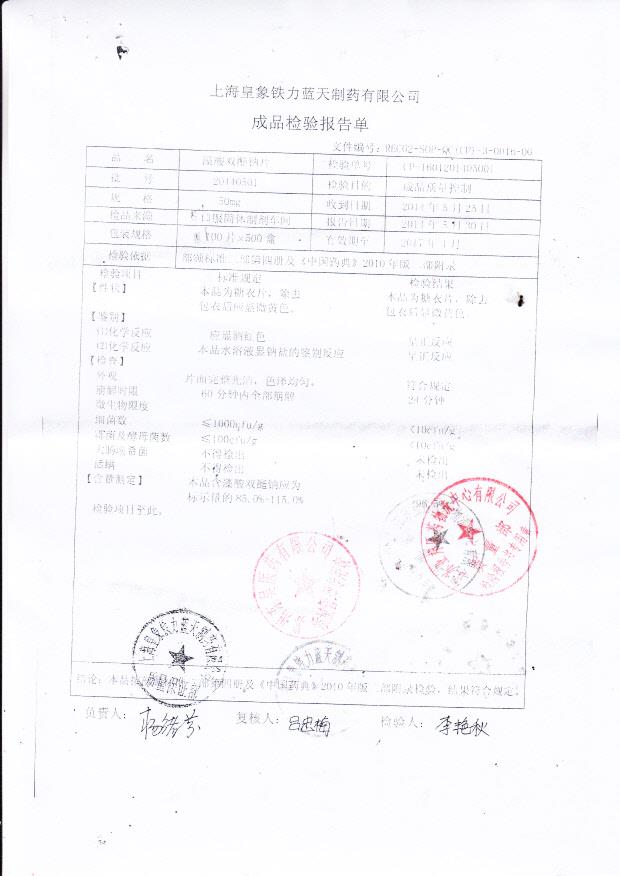 上海皇象铁力蓝天制药有限公司
成品检验报告单
文件编号：REC02-SOP-QC(CP)-3-0016-00
品 名 藻酸双酯钠片 检验单号 CP-1601201405001
批 号 20140501 检验目的 成品质量控制
规 格 50mg 收到日期 2014年5月25日
检品来源 口服固体制剂车间 报告日期 2014年5月30日
包装规格 100片×500盒 有效期至 2017年4月
检验依据 部颁标准二部第四册及《中国药典》2010年版二部附录
检验项目 标准规定 检验结果
【性状】 本品为糖衣片，除去 本品为糖衣片，除去
包衣后应显微黄色。 包衣后显微黄色。
【鉴别】
(1)化学反应 应显酒红色 呈正反应
(2)化学反应 本品水溶液显钠盐的鉴别反应 呈正反应
【检查】
外观 片面完整光洁，色泽均匀。 符合规定
崩解时限 60分钟内全部崩解 24分钟
微生物限度
细菌数 ≤1000cfu/g <10cfu/g
霉菌及酵母菌数 ≤100cfu/g <10cfu/g
大肠埃希菌 不得检出 未检出
活螨 不得检出 未检出
【含量测定】 本品含藻酸双酯钠应为
标示量的85.0%-115.0%
检验项目至此。
上海皇象铁力蓝天制药有限
质量保证部
力蓝天制
结论：本品按 部第四册及《中国药典》2010年版二部附录检验，结果符合规定。
负责人： 复核人：吕忠梅 检验人：李艳秋